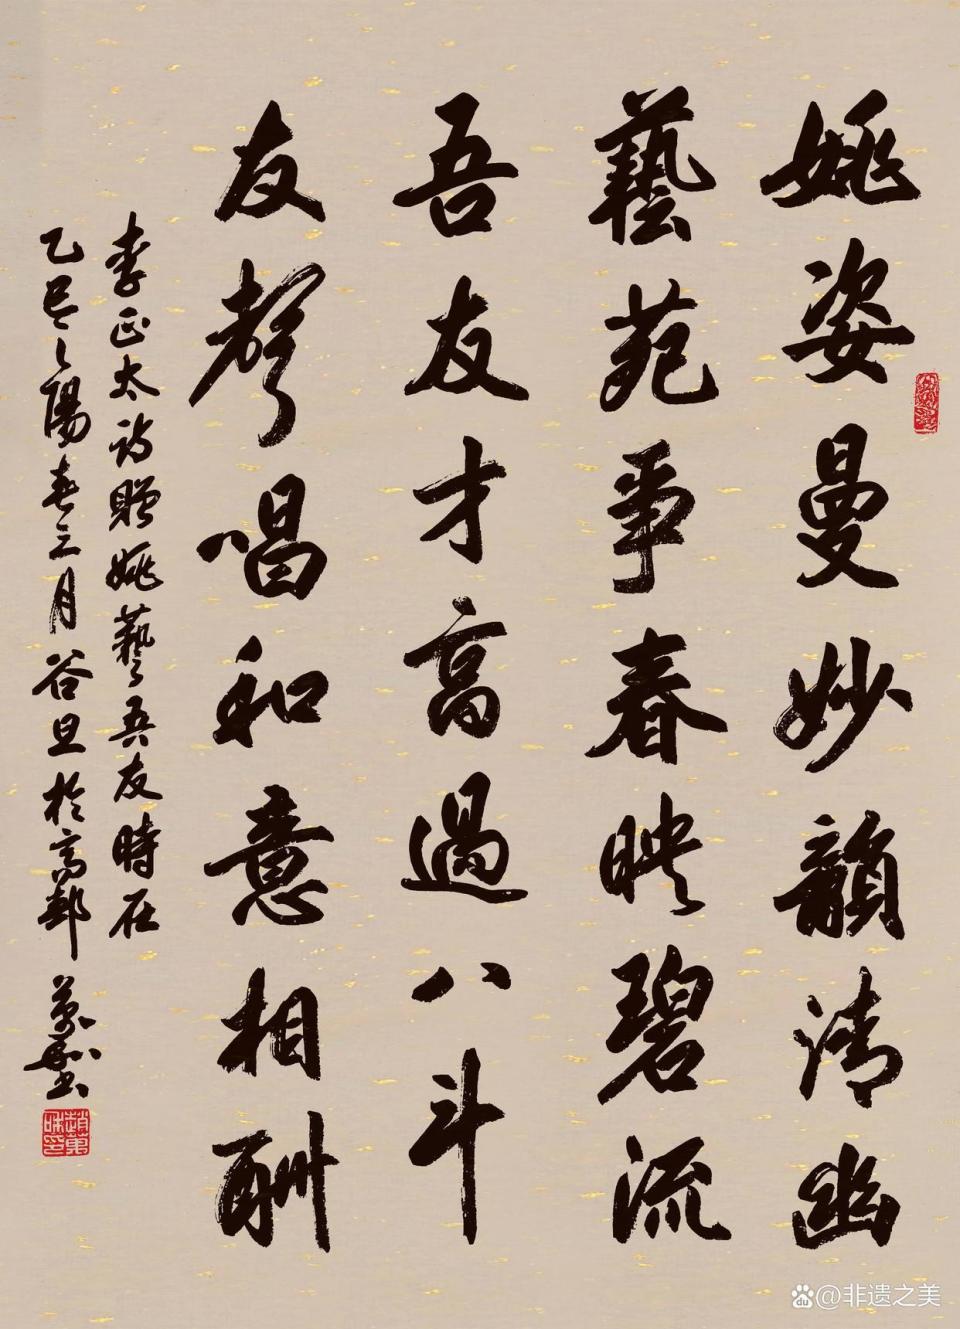 姚姿曼妙韻清幽
藝苑事春映碧流
吾友才高過八斗
友聲唱和意相酬
李正太詩贈姚藝吾友時在
乙巳之陽春三月谷旦於高郵 萬和書
趙萬和印
@非遗之美